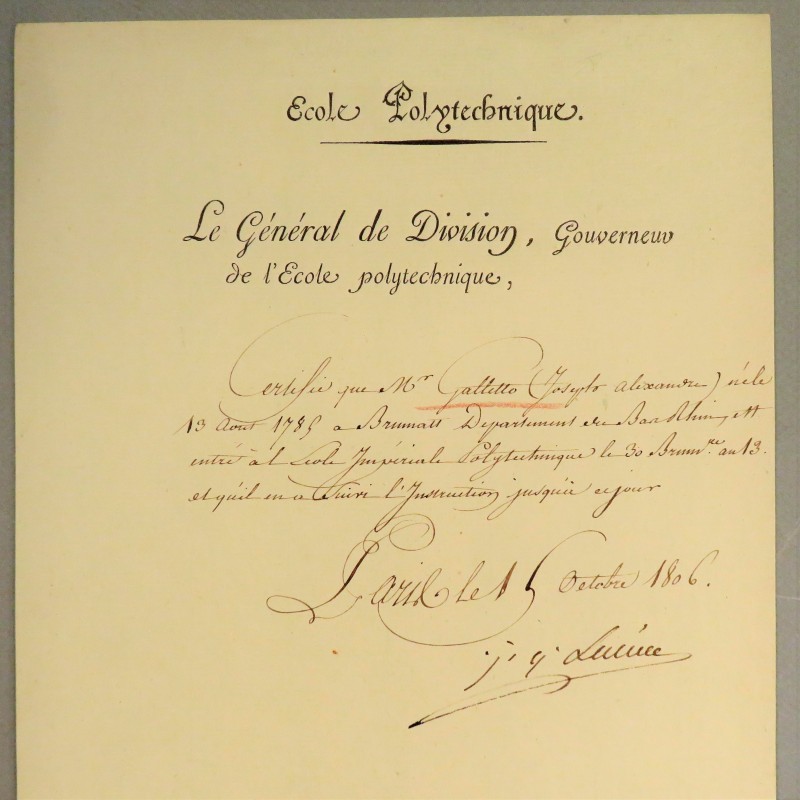 Ecole Polytechnique.
Le Général de Division, Gouverneur
de l'Ecole polytechnique,
Certifie que Mr Galletto (Joseph alexandre) né le
13 Aout 1785 a Brumatt Departement du Bas Rhin, est
entré à l'Ecole Impériale Polytechnique le 30 Brumre an 13.
et qu'il en a Suivi l'Instruction jusqu'à ce jour
Paris le 15 Octobre 1806.
j. g. Lacuée